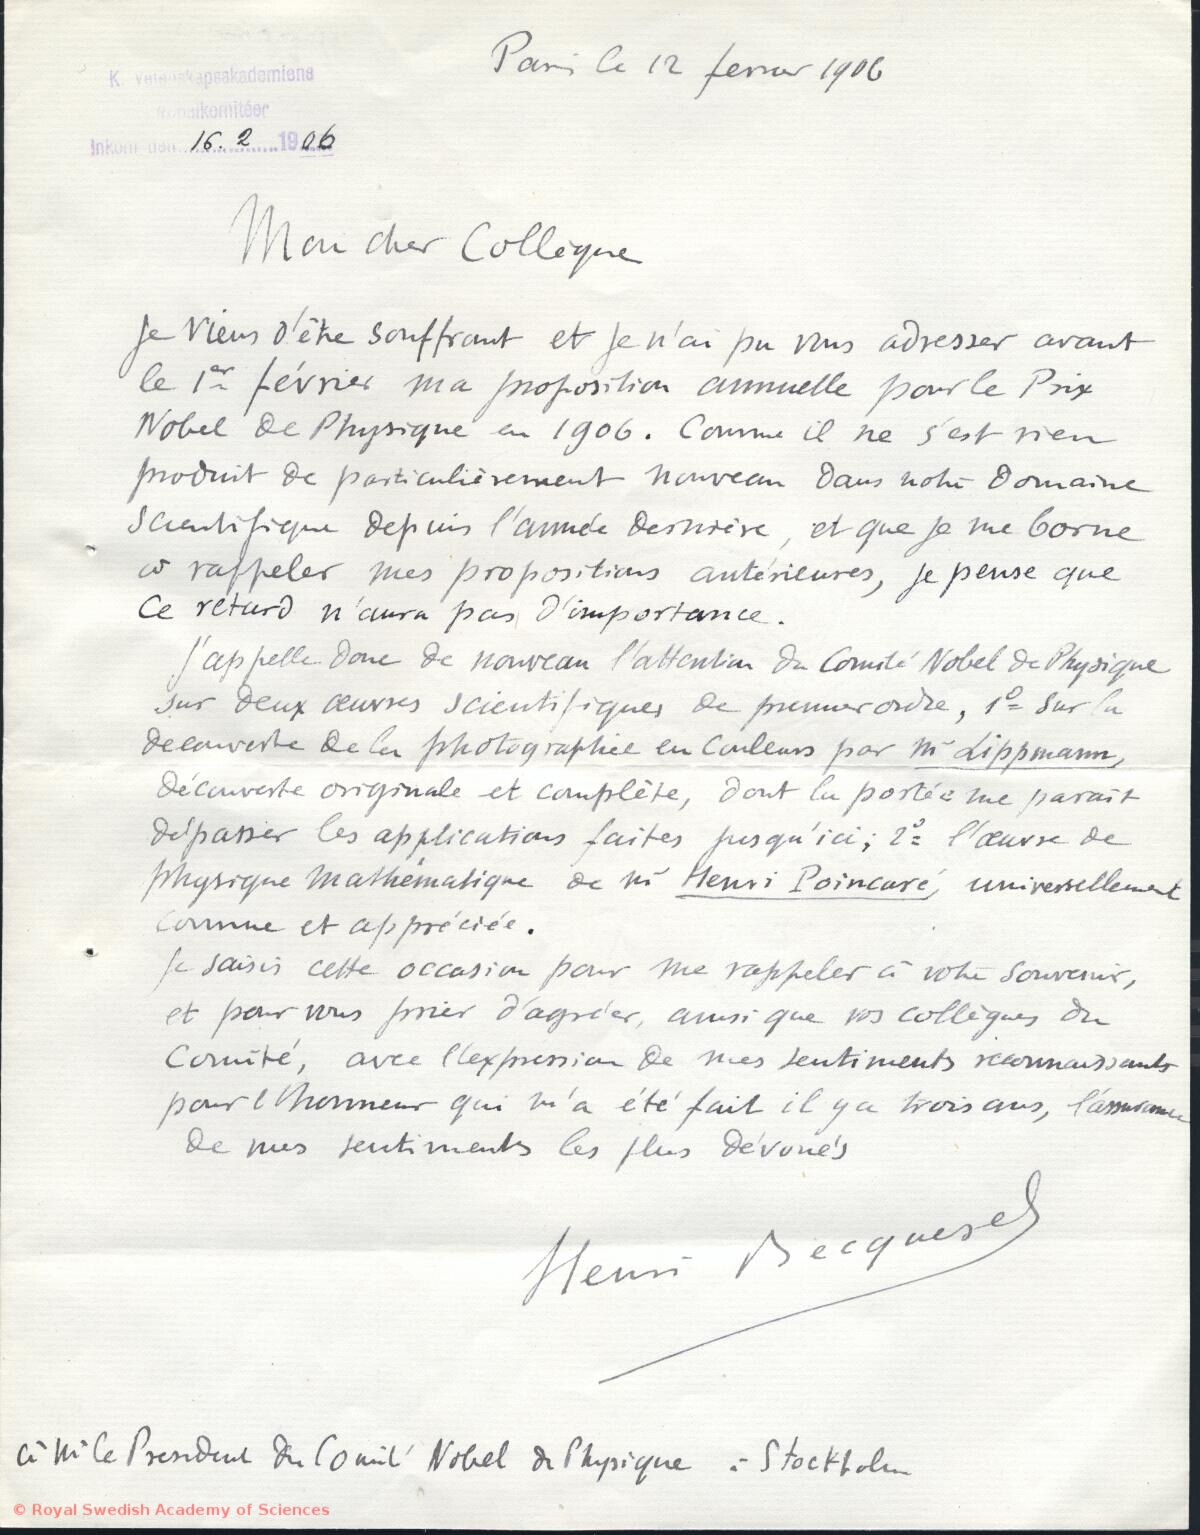 Paris le 12 fevrier 1906
K. Vetenskapsakademiens
Nobelkomitéer
Inkom den 16. 2 1906
Mon cher Collègue
Je viens d'être souffrant et je n'ai pu vous adresser avant
le 1er février ma proposition annuelle pour le Prix
Nobel de Physique en 1906. Comme il ne s'est rien
produit de particulièrement nouveau dans notre domaine
scientifique depuis l'année dernière, et que je me borne
à rappeler mes propositions antérieures, je pense que
ce retard n'aura pas d'importance.
J'appelle donc de nouveau l'attention du Comité Nobel de Physique
sur deux œuvres scientifiques de premier ordre, 1o sur la
découverte de la photographie en couleurs par Mr Lippmann,
découverte originale et complète, dont la portée me parait
dépasser les applications faites jusqu'ici; 2o l'œuvre de
physique mathématique de Mr Henri Poincaré, universellement
connue et appréciée.
Je saisis cette occasion pour me rappeler à votre souvenir,
et pour vous prier d'agréer, ainsi que vos collègues du
Comité, avec l'expression de mes sentiments reconnaissants
pour l'honneur qui m'a été fait il y a trois ans, l'assurance
de mes sentiments les plus dévoués
Henri Becquerel
à Mr le President du Comité Nobel de Physique à Stockholm
© Royal Swedish Academy of Sciences